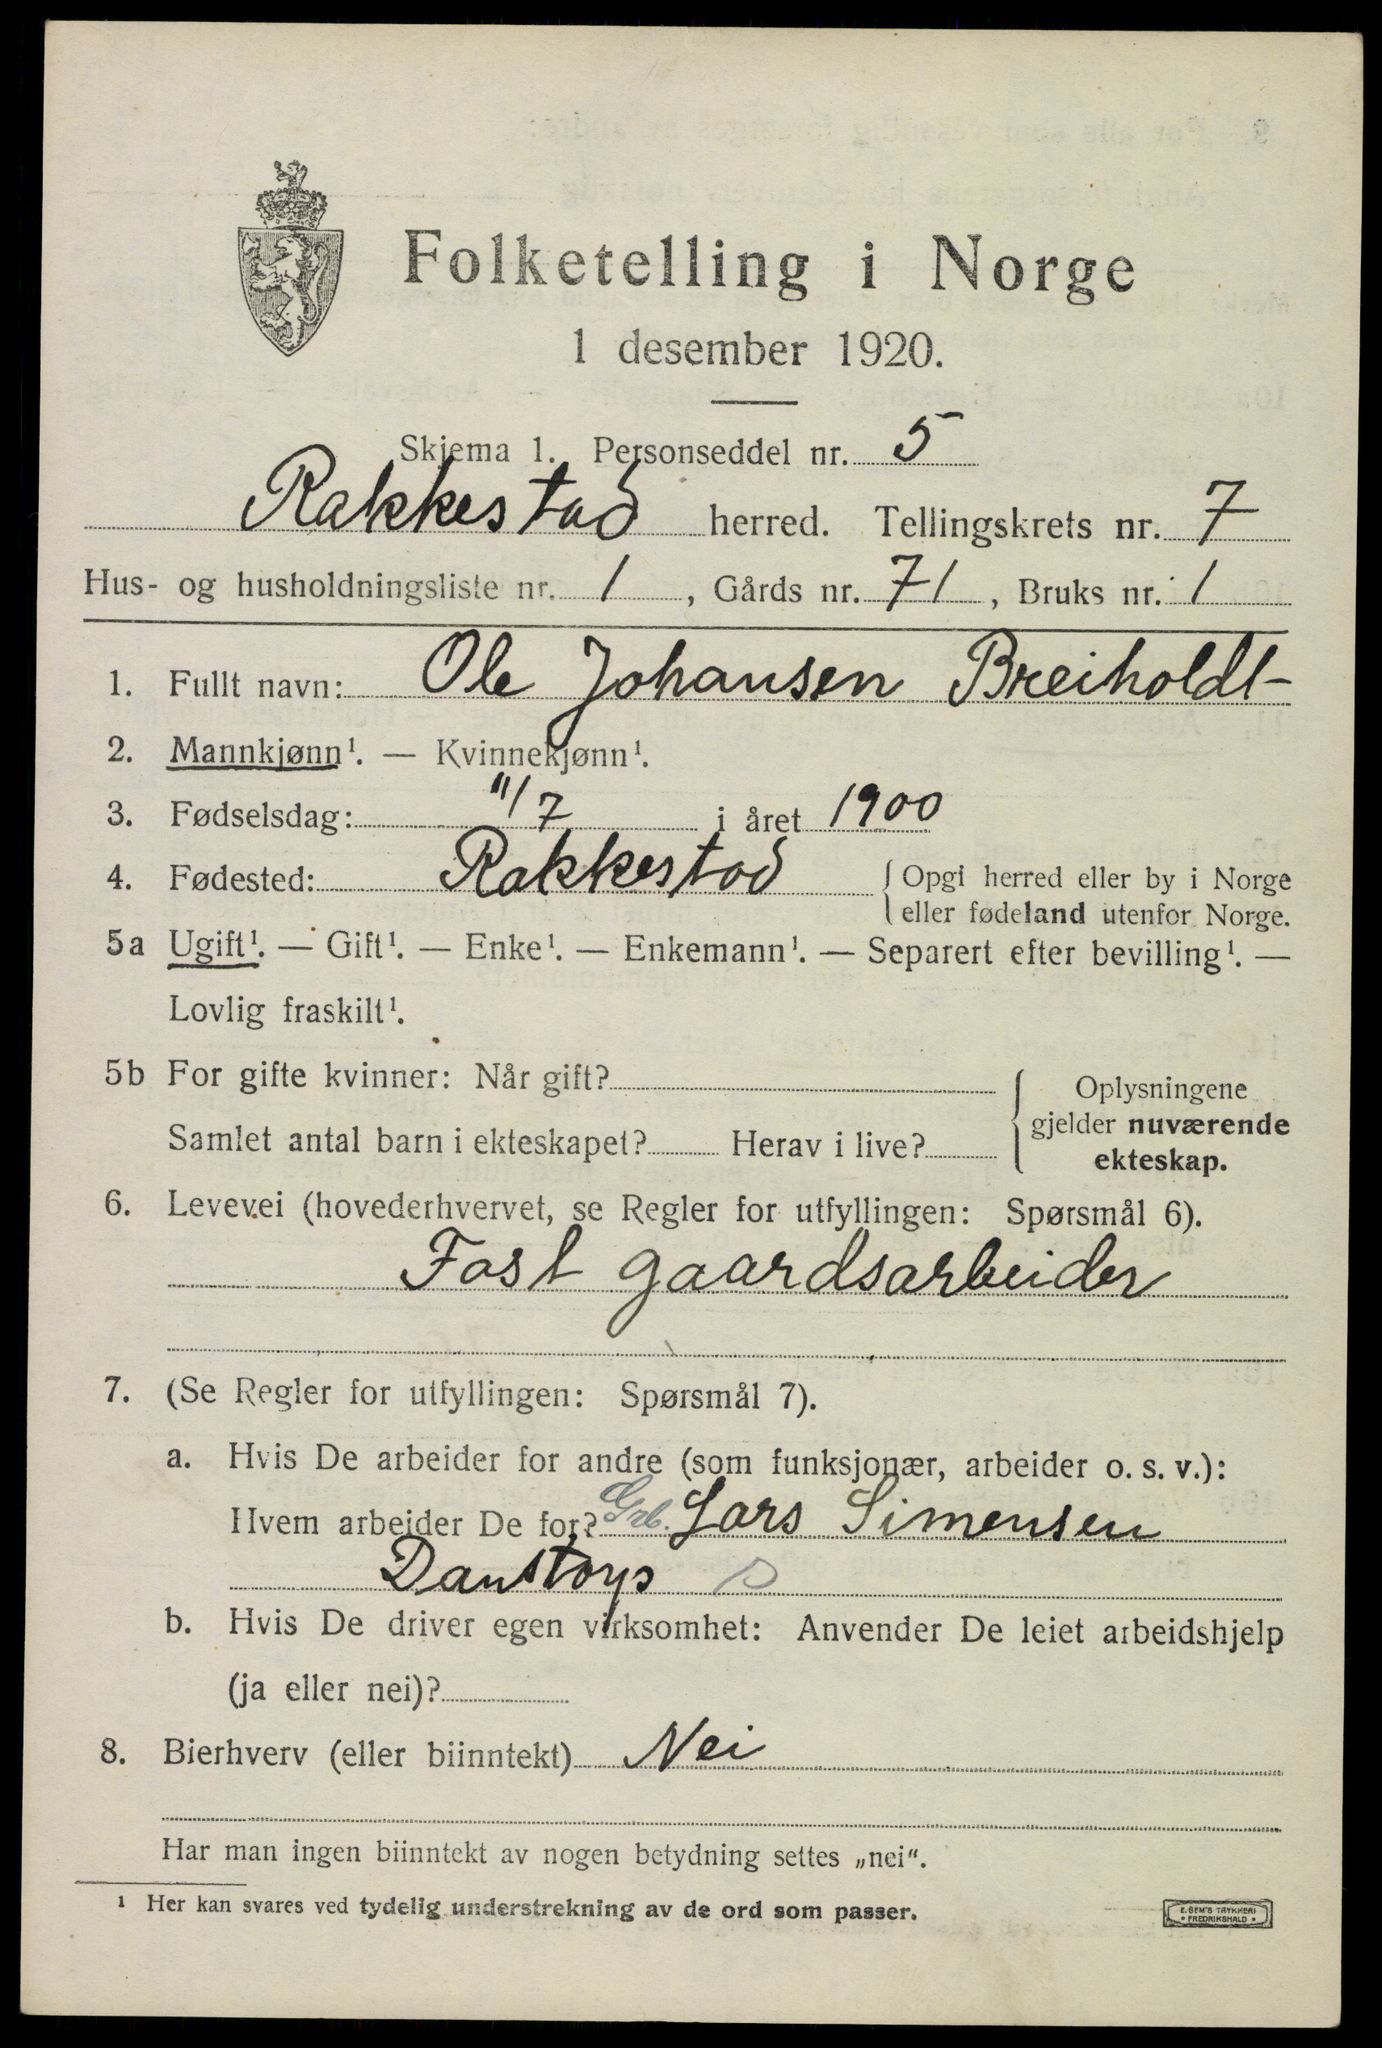 Folketelling i Norge
1 desember 1920.
Skjema 1. Personseddel nr. 5
Rakkestad herred. Tellingskrets nr. 7
Hus- og husholdningsliste nr. 1, Gårds nr. 71, Bruks nr. 1
1. Fullt navn: Ole Johansen Breiholdt
2. Mannkjønn¹. — Kvinnekjønn¹.
3. Fødselsdag: 11/7 i året 1900
4. Fødested: Rakkestad { Opgi herred eller by i Norge
eller fødeland utenfor Norge.
5a Ugift¹. — Gift¹. — Enke¹. — Enkemann¹. — Separert efter bevilling¹. —
Lovlig fraskilt¹.
5b For gifte kvinner: Når gift?
Samlet antal barn i ekteskapet? Herav i live?
Oplysningene
gjelder nuværende
ekteskap.
6. Levevei (hovederhvervet, se Regler for utfyllingen: Spørsmål 6).
Fast gaardsarbeider
7. (Se Regler for utfyllingen: Spørsmål 7).
a. Hvis De arbeider for andre (som funksjonær, arbeider o. s. v.):
Hvem arbeider De for? Grb. Lars Simensen
Danstorp
b. Hvis De driver egen virksomhet: Anvender De leiet arbeidshjelp
(ja eller nei)?
8. Bierhverv (eller biinntekt) Nei
Har man ingen biinntekt av nogen betydning settes „nei".
¹ Her kan svares ved tydelig understrekning av de ord som passer.
E. SEM'S TRYKKERI
* FREDRIKSHALD *